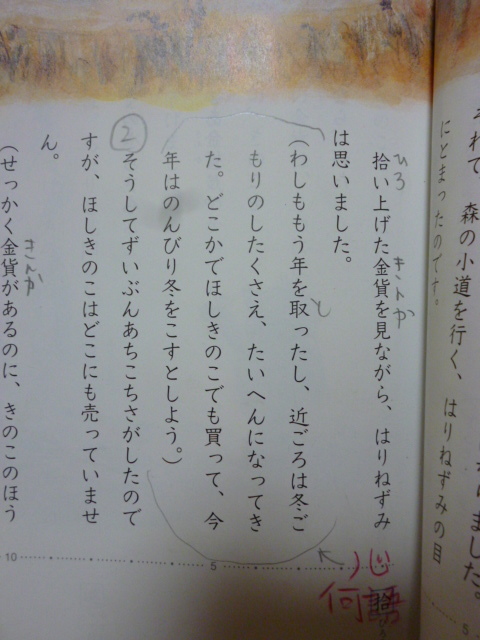 ました。
それて、森の小道を行く、はりねずみの目
にとまったのです。
拾い上げた金貨を見ながら、はりねずみ
ひろ
きんか
は思いました。
(わしももう年を取ったし、近ごろは冬ご
と
もりのしたくさえ、たいへんになってき
た。どこかでほしきのこでも買って、今
年はのんびり冬をこすとしよう。)
②
そうしてずいぶんあちこちさがしたので
すが、ほしきのこはどこにも売っていませ
ん。
(せっかく金貨があるのに、きのこのほう
きんか
心
何語
5
5
10